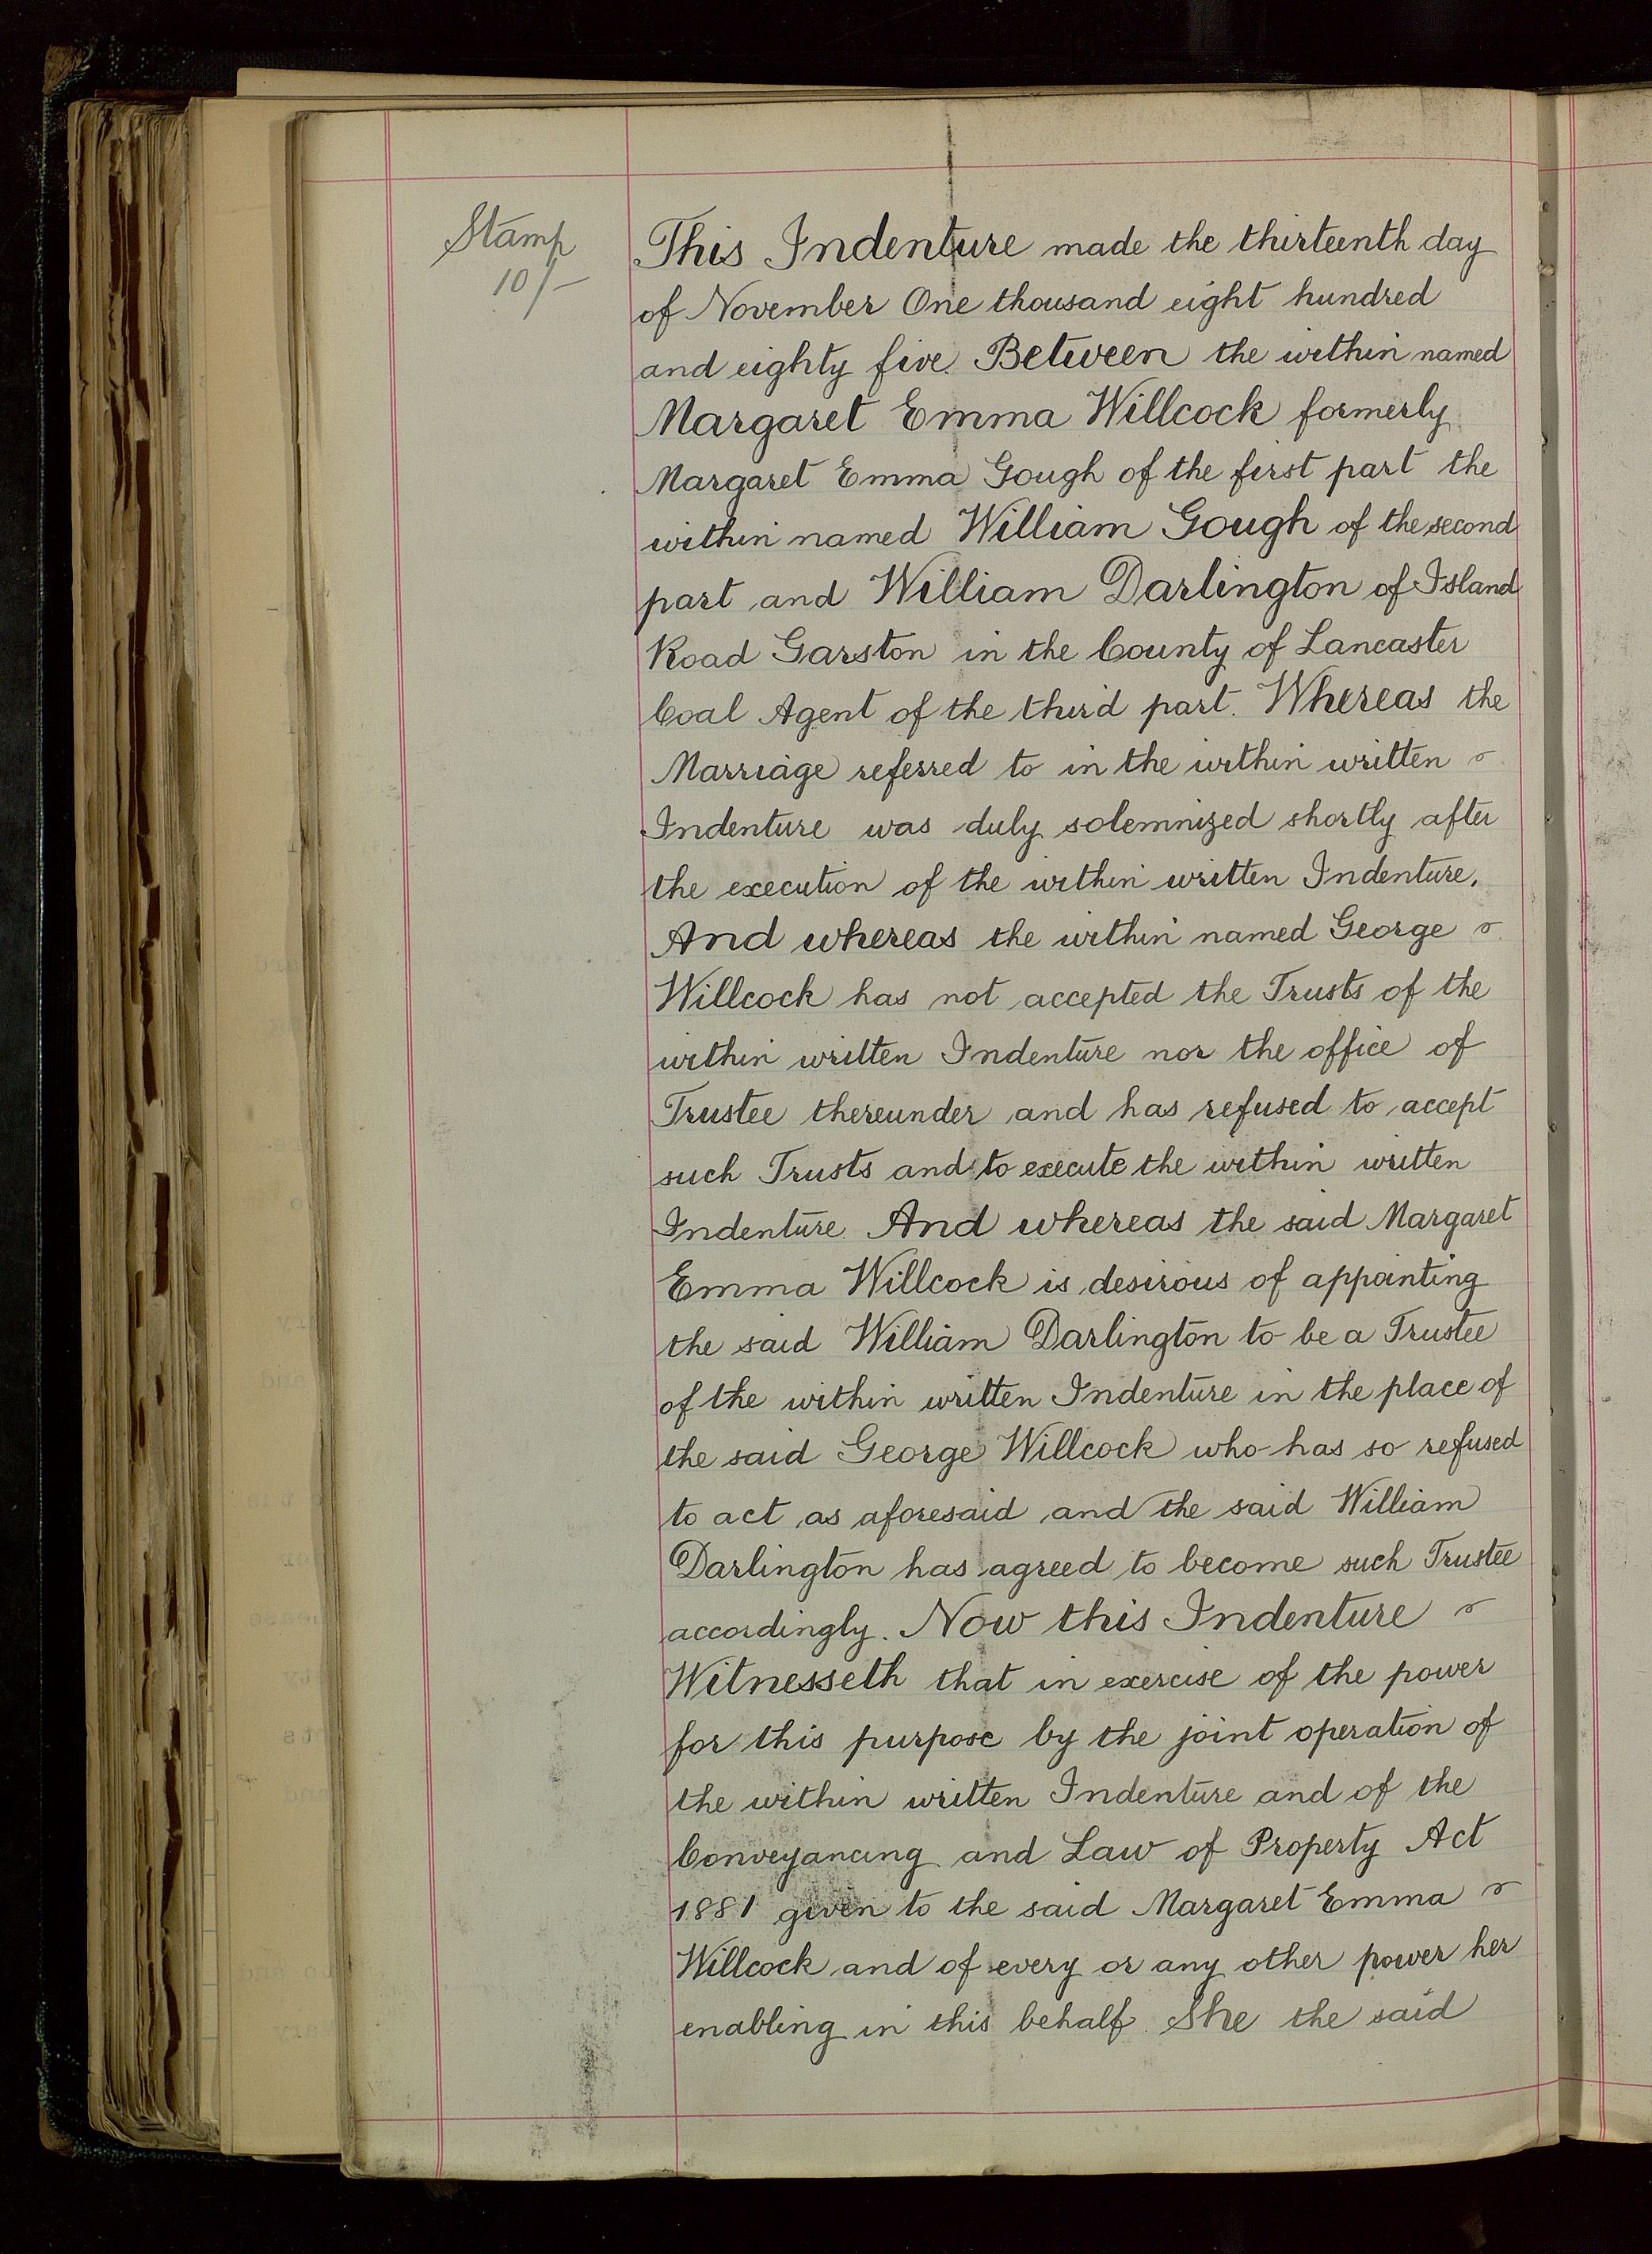 Stamp
10/-
This Indenture made the thirteenth day
of November One thousand eight hundred
and eighty five. Between the within named
Margaret Emma Willcock formerly
Margaret Emma Gough of the first part the
within named William Gough of the second
part and William Darlington of Island
Road Garston in the County of Lancaster
Coal Agent of the third part. Whereas the
Marriage referred to in the within written
Indenture was duly solemnized shortly after
the execution of the within written Indenture.
And whereas the within named George
Willcock has not accepted the Trusts of the
within written Indenture nor the office of
Trustee thereunder and has refused to accept
such Trusts and to execute the within written
Indenture. And whereas the said Margaret
Emma Willcock is desirous of appointing
the said William Darlington to be a Trustee
of the within written Indenture in the place of
the said George Willcock who has so refused
to act as aforesaid and the said William
Darlington has agreed to become such Trustee
accordingly. Now this Indenture
Witnesseth that in exercise of the power
for this purpose by the joint operation of
the within written Indenture and of the
Conveyancing and Law of Property Act
1881 given to the said Margaret Emma
Willcock and of every or any other power her
enabling in this behalf. She the said